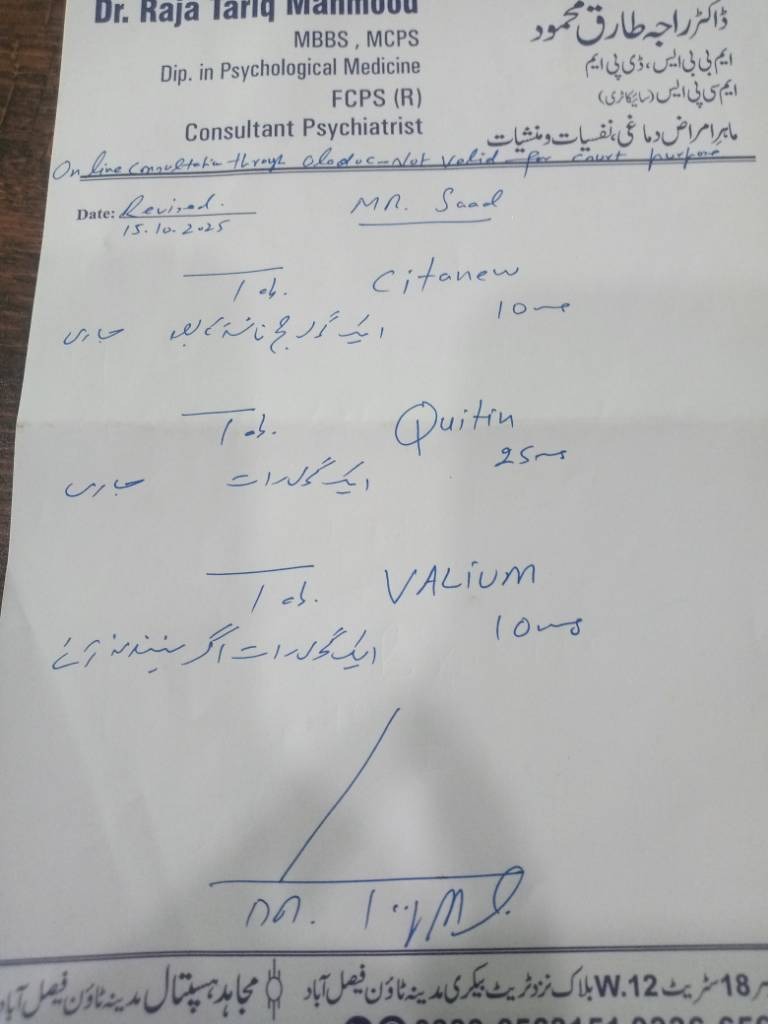 Dr. Raja Tariq Mahmood
ڈاکٹر راجہ طارق محمود
MBBS , MCPS
ایم بی بی ایس، ڈی پی ایم
Dip. in Psychological Medicine
ایم سی پی ایس (سائیکاٹری)
FCPS (R)
Consultant Psychiatrist
ماہر امراض دماغی، نفسیات و منشیات
Online consultation through oladoc - Not valid for court purpose
Date: Revised.
MR. Saad
15.10.2025
Tab. Citanew
10mg
ایک گولی صبح ناشتہ کے بعد جاری
Tab. Quitin
25mg
ایک گولی رات جاری
Tab. VALIUM
10mg
ایک گولی رات اگر نیند نہ آئے
DR.
18 سٹریٹ W.12 بلاک نزد ٹریٹ بیکری مدینہ ٹاؤن فیصل آباد
مجاہد ہسپتال مدینہ ٹاؤن فیصل آباد